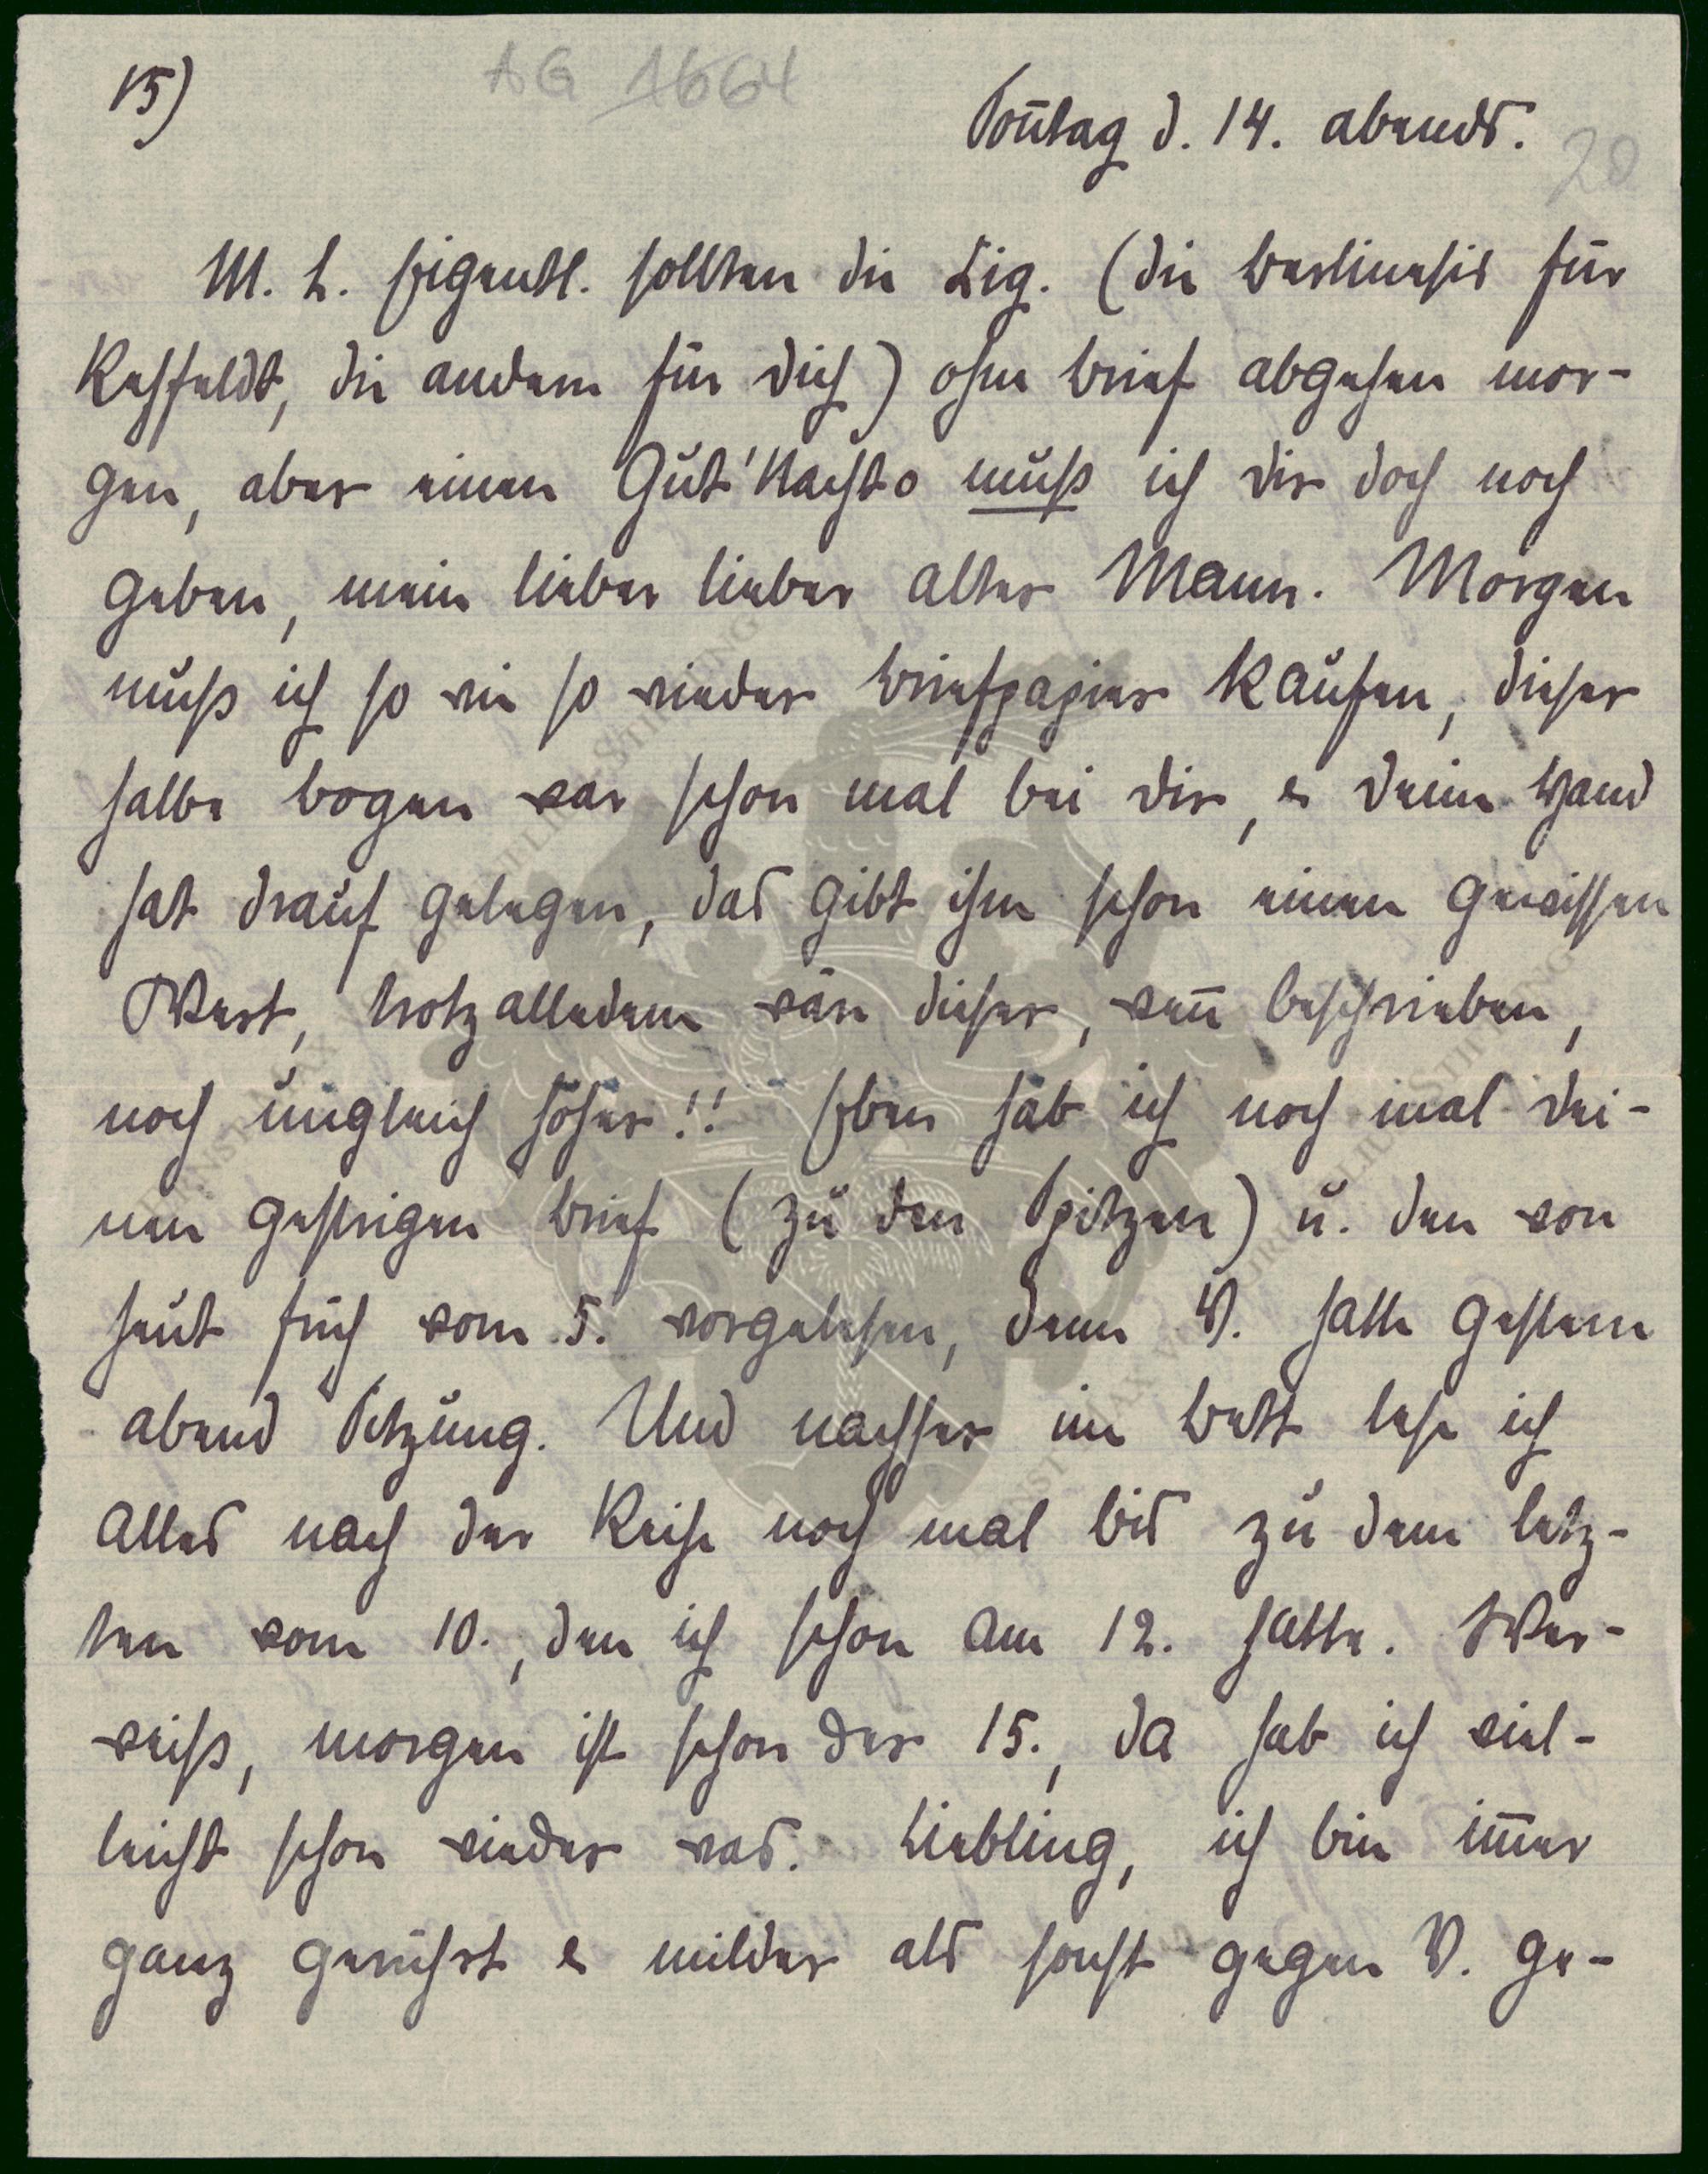 15)
AG 1664
Sonntag d. 14. abends.
20
M. L. Eigentl. sollten die Zig. (die berlinesis für
Rehfeldt, die andern für dich) ohne brief abgehen mor-
gen, aber einen Gut'Nacht o muß ich dir doch noch
geben, mein lieber lieber alter Mann. Morgen
muß ich so wie so wieder briefpapier kaufen, dieser
halbe bogen war schon mal bei dir, & deine Hand
hat drauf gelegen, das gibt ihm schon einen gewissen
Wert, trotzalledem wär dieser, wenn beschrieben,
noch ungleich höher!! Eben hab ich noch mal dei-
nen gestrigen brief (zu den Spitzen) u. den von
heut früh vom 5. vorgelesen, denn V. hatte gestern
abend Sitzung. Und nachher im bett lese ich
alles nach der Reihe noch mal bis zu dem letz-
ten vom 10., den ich schon am 12. hatte. Wer
weiß, morgen ist schon der 15., da hab ich viel-
leicht schon wieder was. Liebling, ich bin immer
ganz gerührt & milder als sonst gegen V. ge-